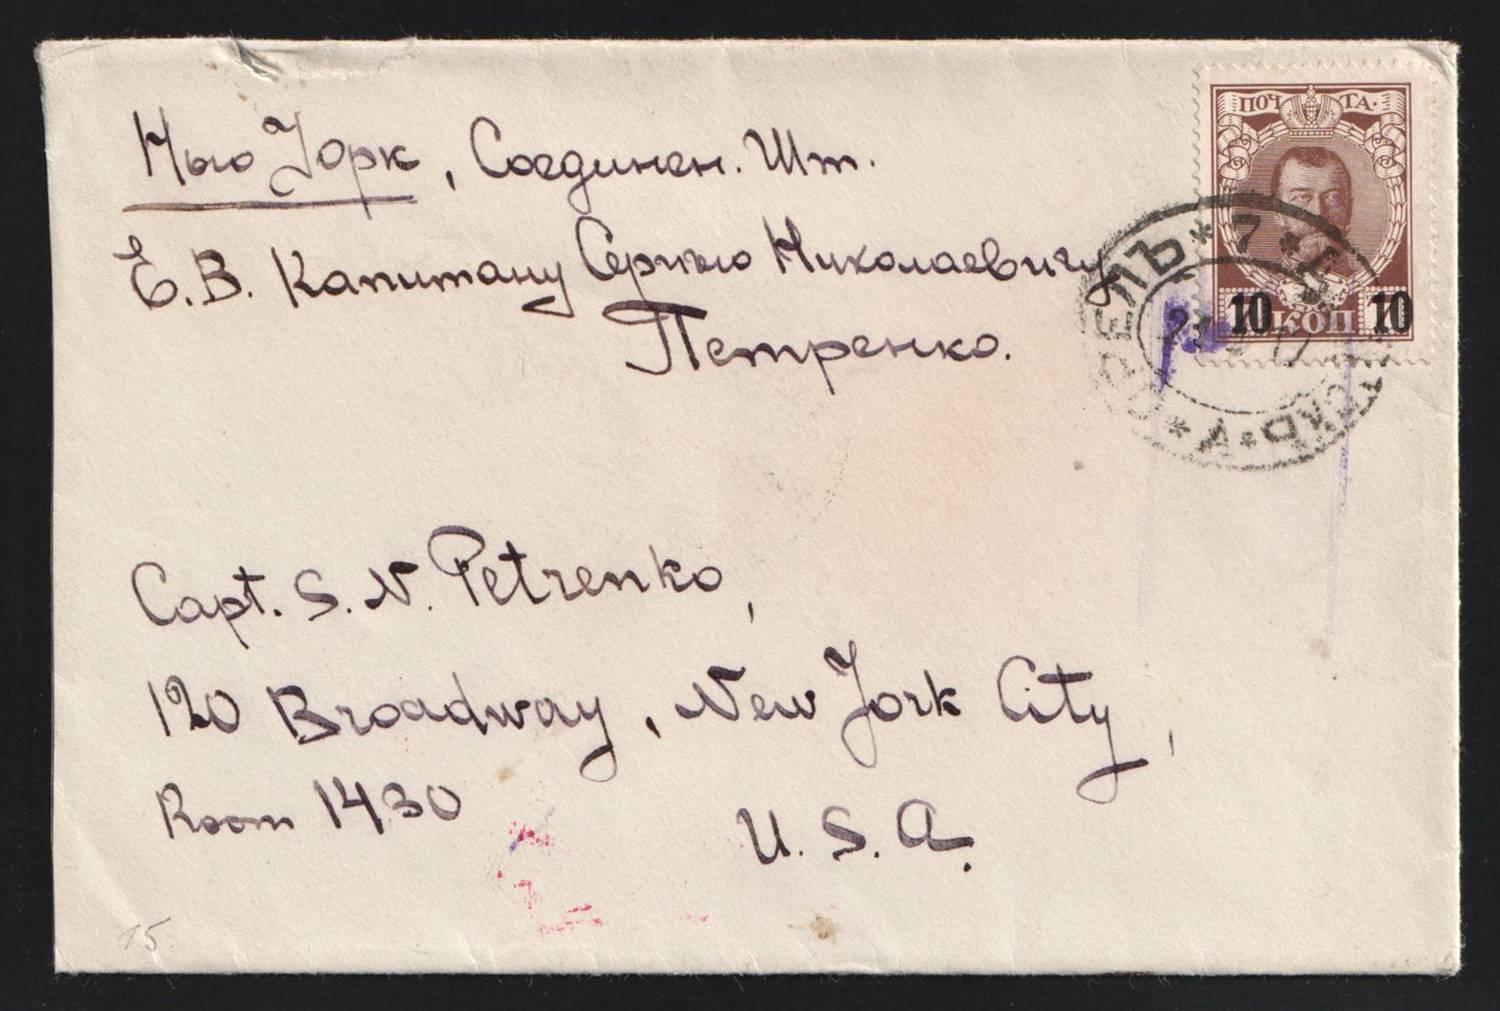 Нью Јорк, Соединен. Шт.
Е. В. Капитану Сергѣю Николаевичу
Петренко.
ПОЧТА.
10 КОП 10
ОРЕЛЪ * 7 *
Capt. S. N. Petrenko,
120 Broadway, New York City,
Room 1430
U. S. A.
15.